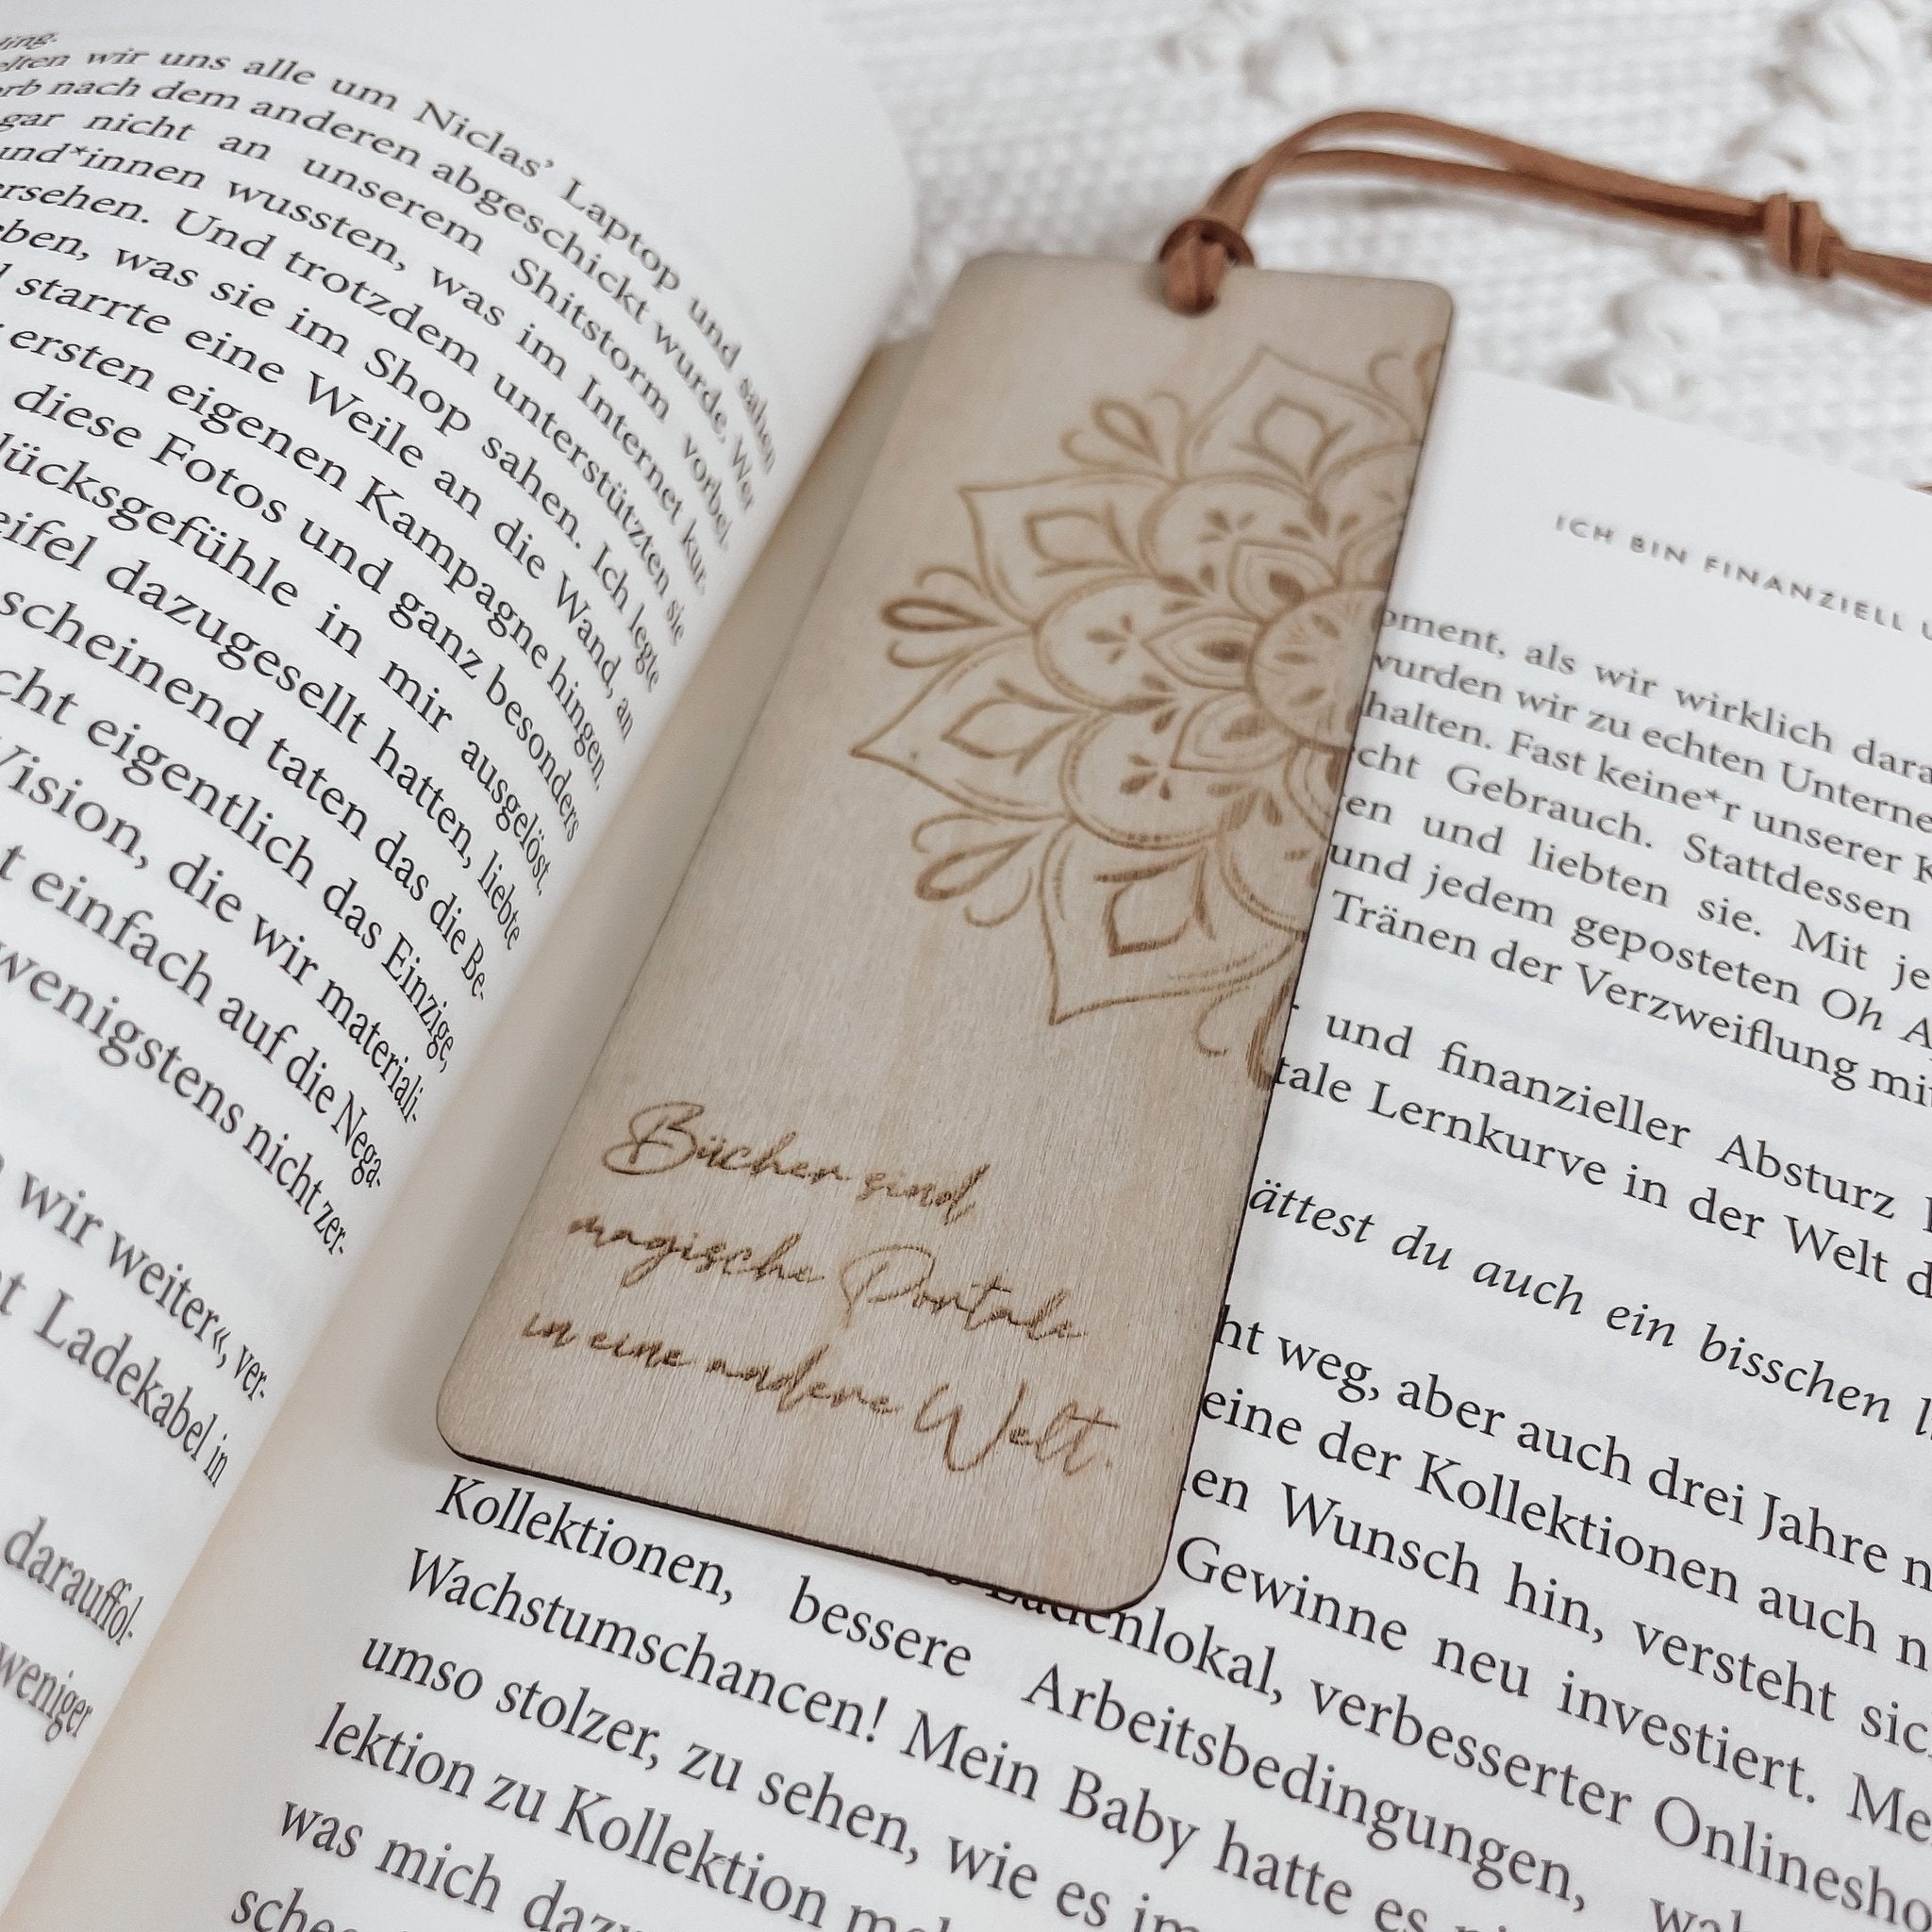 elten wir uns alle um Niclas’ Laptop und sahen
nach dem anderen abgeschickt wurde. Wer
gar nicht an unserem Shitstorm vorbei.
und*innen wussten, was im Internet kur-
ersehen. Und trotzdem unterstützten sie
eben, was sie im Shop sahen. Ich legte
starrte eine Weile an die Wand, an
ersten eigenen Kampagne hingen.
diese Fotos und ganz besonders
lücksgefühle in mir ausgelöst.
eifel dazugesellt hatten, liebte
scheinend taten das die Be-
cht eigentlich das Einzige,
Vision, die wir materiali-
t einfach auf die Nega-
wenigstens nicht zer-
wir weiter«, ver-
t Ladekabel in
darauffol-
weniger
Bücher sind
magische Portale
in eine andere Welt.
ICH BIN FINANZIELL
oment, als wir wirklich dara
wurden wir zu echten Unterne
halten. Fast keine*r unserer K
cht Gebrauch. Stattdessen
en und liebten sie. Mit je
und jedem geposteten Oh A
Tränen der Verzweiflung mi
und finanzieller Absturz
tale Lernkurve in der Welt d
ättest du auch ein bisschen l
ht weg, aber auch drei Jahre n
eine der Kollektionen auch n
en Wunsch hin, versteht sic
Gewinne neu investiert. Me
Ladenlokal, verbesserter Onlinesho
Kollektionen, bessere Arbeitsbedingungen,
Wachstumschancen! Mein Baby hatte es
umso stolzer, zu sehen, wie es im
lektion zu Kollektion
was mich